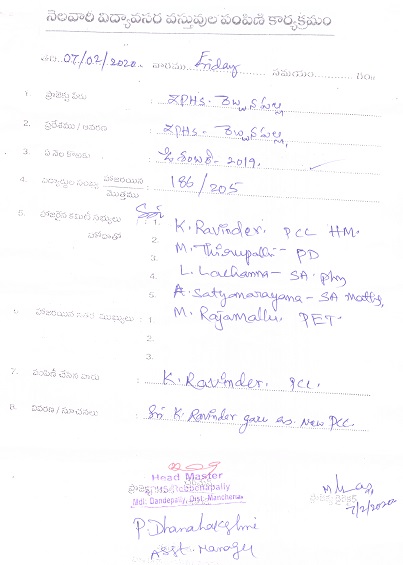 నెలవారి విద్యావసర వస్తువుల పంపిణి కార్యక్రమం
తేది: 07/02/2020. వారము Friday సమయం గం॥
1. ప్రాజెక్టు పేరు : ZPHS.
2. ప్రదేశము / ఆవరణ : ZPHS.
3. ఏ నెల కొరకు : డిశంబర్ - 2019.
4. విద్యార్థుల సంఖ్య హాజరయిన / మొత్తము : 186/205
5. హాజరైన కమిటి సభ్యులు హోదాతో : 1. K. Ravinder. PCC HM.
2. M. Thirupathi - PD
3.
4. L. Lachanna - SA. phy
5. A. Satyanarayana - SA Maths,
6. హాజరయిన ఇతర ముఖ్యులు : 1 M. Rajamallu PET.
2.
3.
7. పంపిణీ చేసిన వారు : K. Ravinder. PCC.
8. వివరణ / సూచనలు : Sri K. Ravinder garu as New PCC.
Head Master
Mdl: Dandepally, Dist: Mancherial
7/2/2020
P. Dhanalakshmi
Asst. Manager